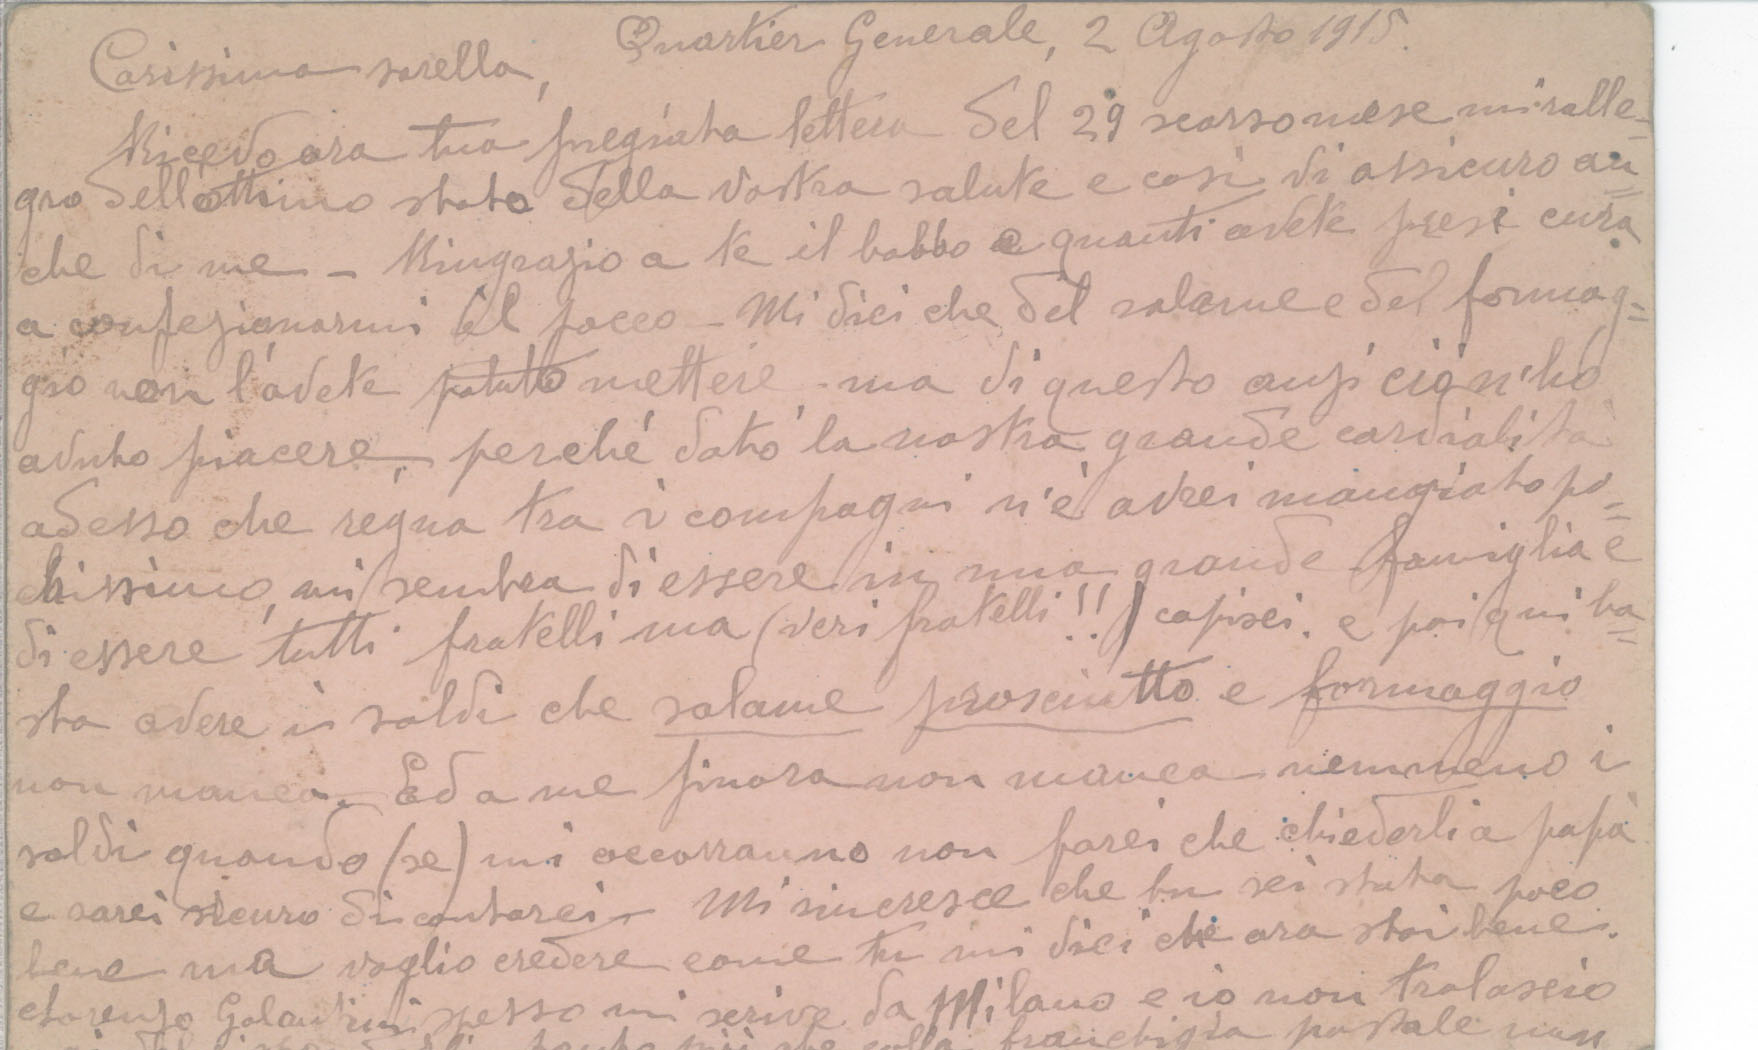 Quartier Generale, 2 Agosto 1915.
Carissima sorella,
Ricevo ora tua pregiata lettera del 29 scorso mese mi ralle-
gro dell'ottimo stato della vostra salute e così vi assicuro an=
che di me - Ringrazio a te il babbo e quanti avete presi cura
a confezionarmi il pacco - Mi dici che del salame e del formag=
gio non l'avete potuto mettere - ma di questo anzi ciò n'ho
avuto piacere, perché dato la nostra grande cardialità
adesso che regna tra i compagni n'é avrei mangiato po=
chissimo, mi sembra di essere in una grande famiglia e
di essere tutti fratelli ma (veri fratelli!!) capisci. e poi qui ba=
sta avere i soldi che salame prosciutto e formaggio
non manca. Ed a me finora non manca nemmeno i
soldi quando (se) mi occorranno non farei che chiederli a papà
e sarei sicuro di contarci - Mi rincresce che tu sei stata poco
bene ma voglio credere come tu mi dici che ora stai bene.
Galantini spesso mi scrive da Milano e io non tralascio
più che colla franchigia postale non